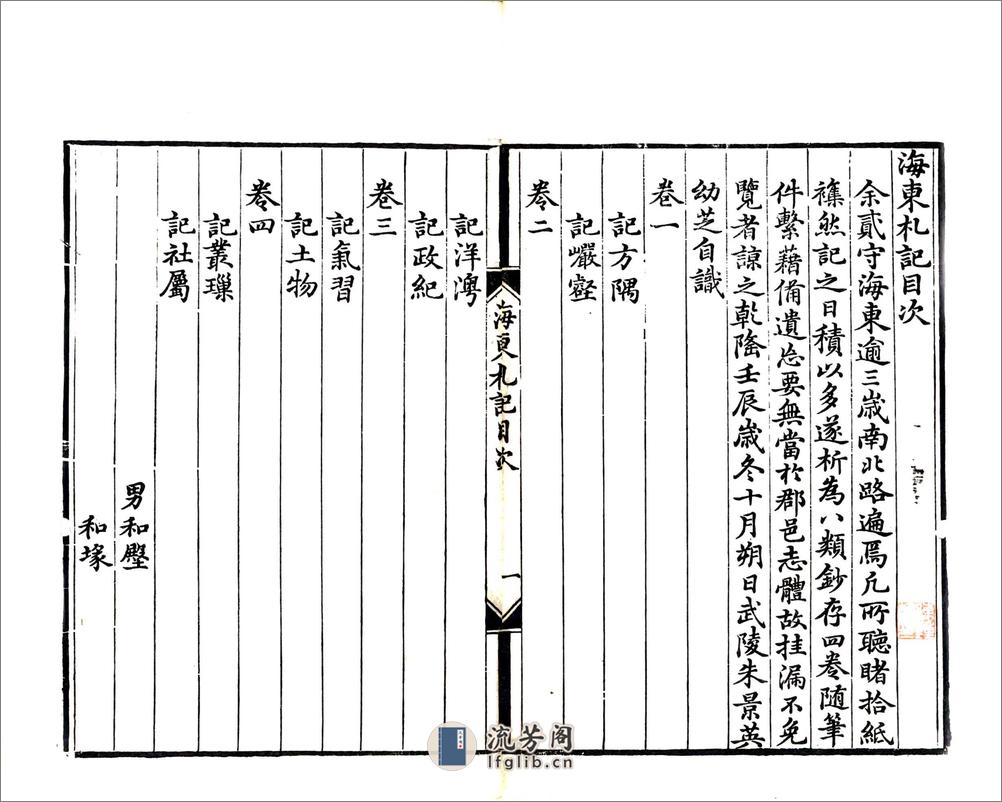 海東札記目次
余貳守海東逾三歲南北路遍焉凡所聽睹拾紙
襍然記之日積以多遂析為八類鈔存四卷隨筆
件繫藉備遺忘要無當於郡邑志體故挂漏不免
覽者諒之乾隆壬辰歲冬十月朔日武陵朱景英
幼芝自識
卷一
記方隅
記巖壑
卷二
海東札記目次
一
記洋澳
記政紀
卷三
記氣習
記土物
卷四
記叢璅
記社屬
男和墅
和塜
流芳阁
lfglib.cn